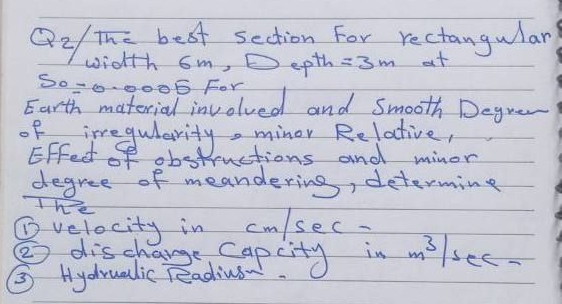 Q2/ The best section For rectangular
width 6m, Depth = 3m at
So = 0.0006 For
Earth material involved and Smooth Degree
of irregularity, minor Relative,
Effect of obstructions and minor
degree of meandering, determine
The
① velocity in cm/sec -
② discharge Capcity in m³/sec -
③ Hydrualic Readius -